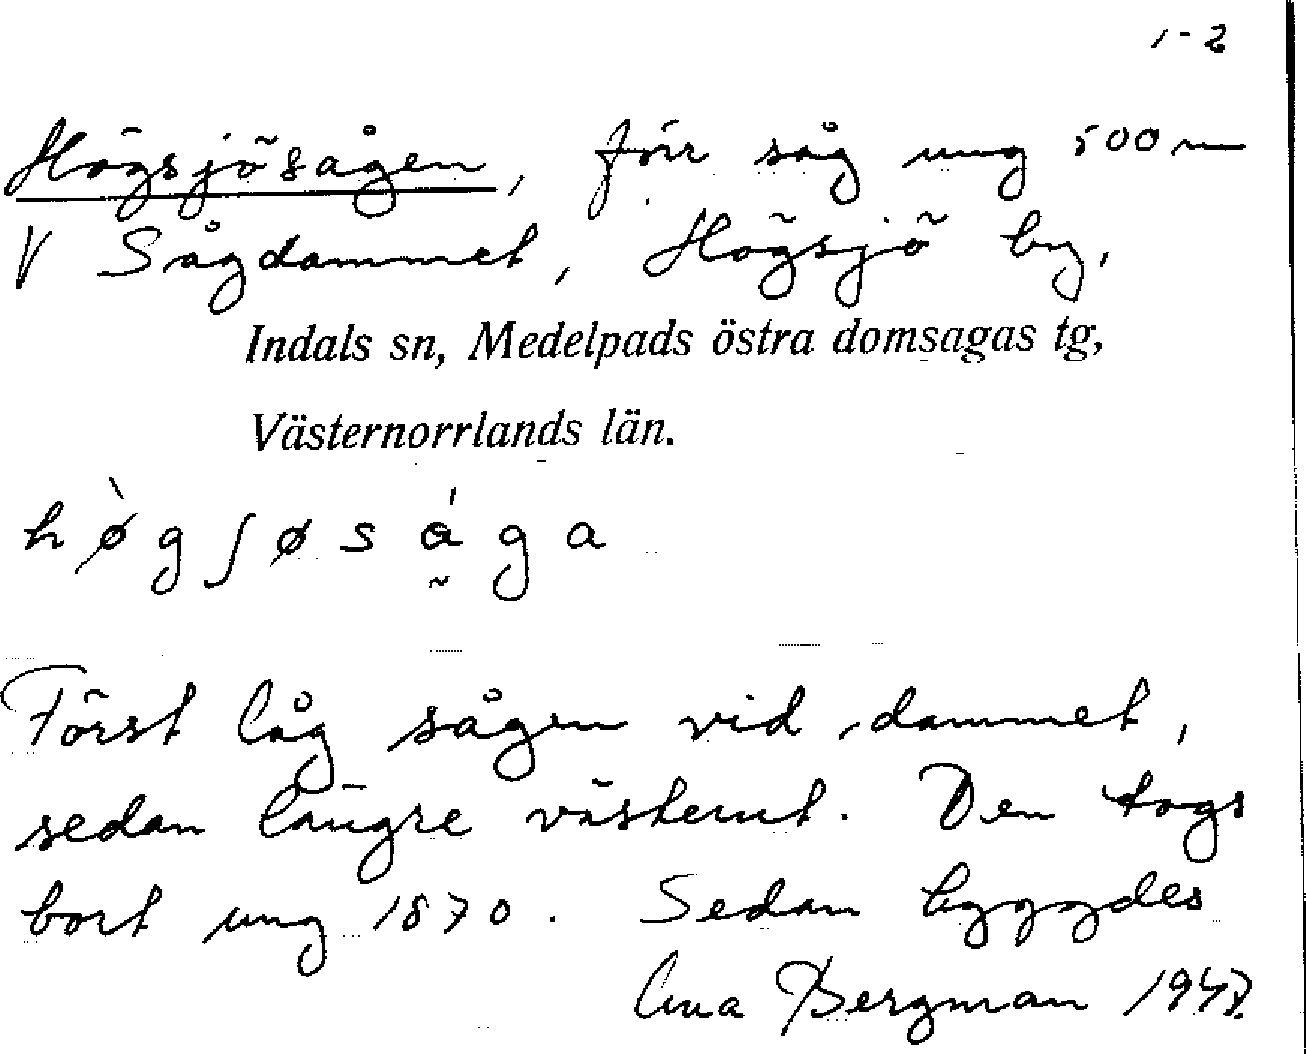 1-2
Högsjösågen, förr såg ung 500 m
V Sågdammet, Högsjö by,
Indals sn, Medelpads östra domsagas tg,
Västernorrlands län.
hø̀gʃøsá̰ga
Först låg sågen vid dammet,
sedan längre västerut. Den togs
bort ung 1870. Sedan byggdes
Bergman 1947.